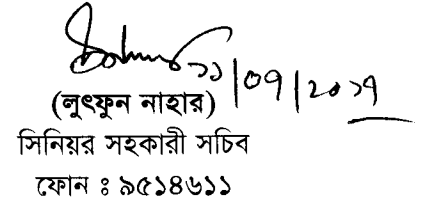 ১১/০৭/২০১৭
(লুৎফুন নাহার)
সিনিয়র সহকারী সচিব
ফোন ঃ ৯৫১৪৬১১